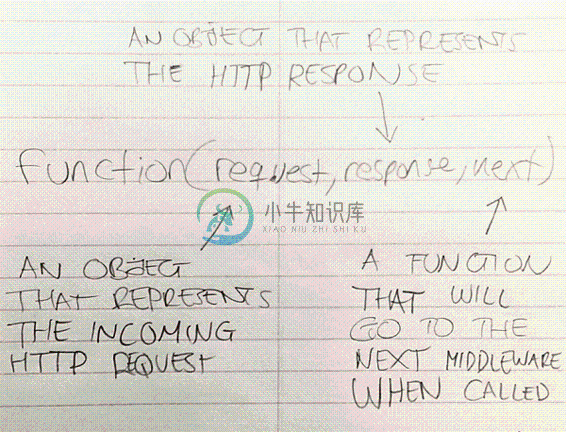 AN OBJECT THAT REPRESENTS
THE HTTP RESPONSE
function(request, response, next)
小牛知识库
XIAO NIU ZHI SHI KU
AN OBJECT
THAT REPRESENTS
THE INCOMING
HTTP REQUEST
A FUNCTION
THAT WILL
GO TO THE
NEXT MIDDLEWARE
WHEN CALLED